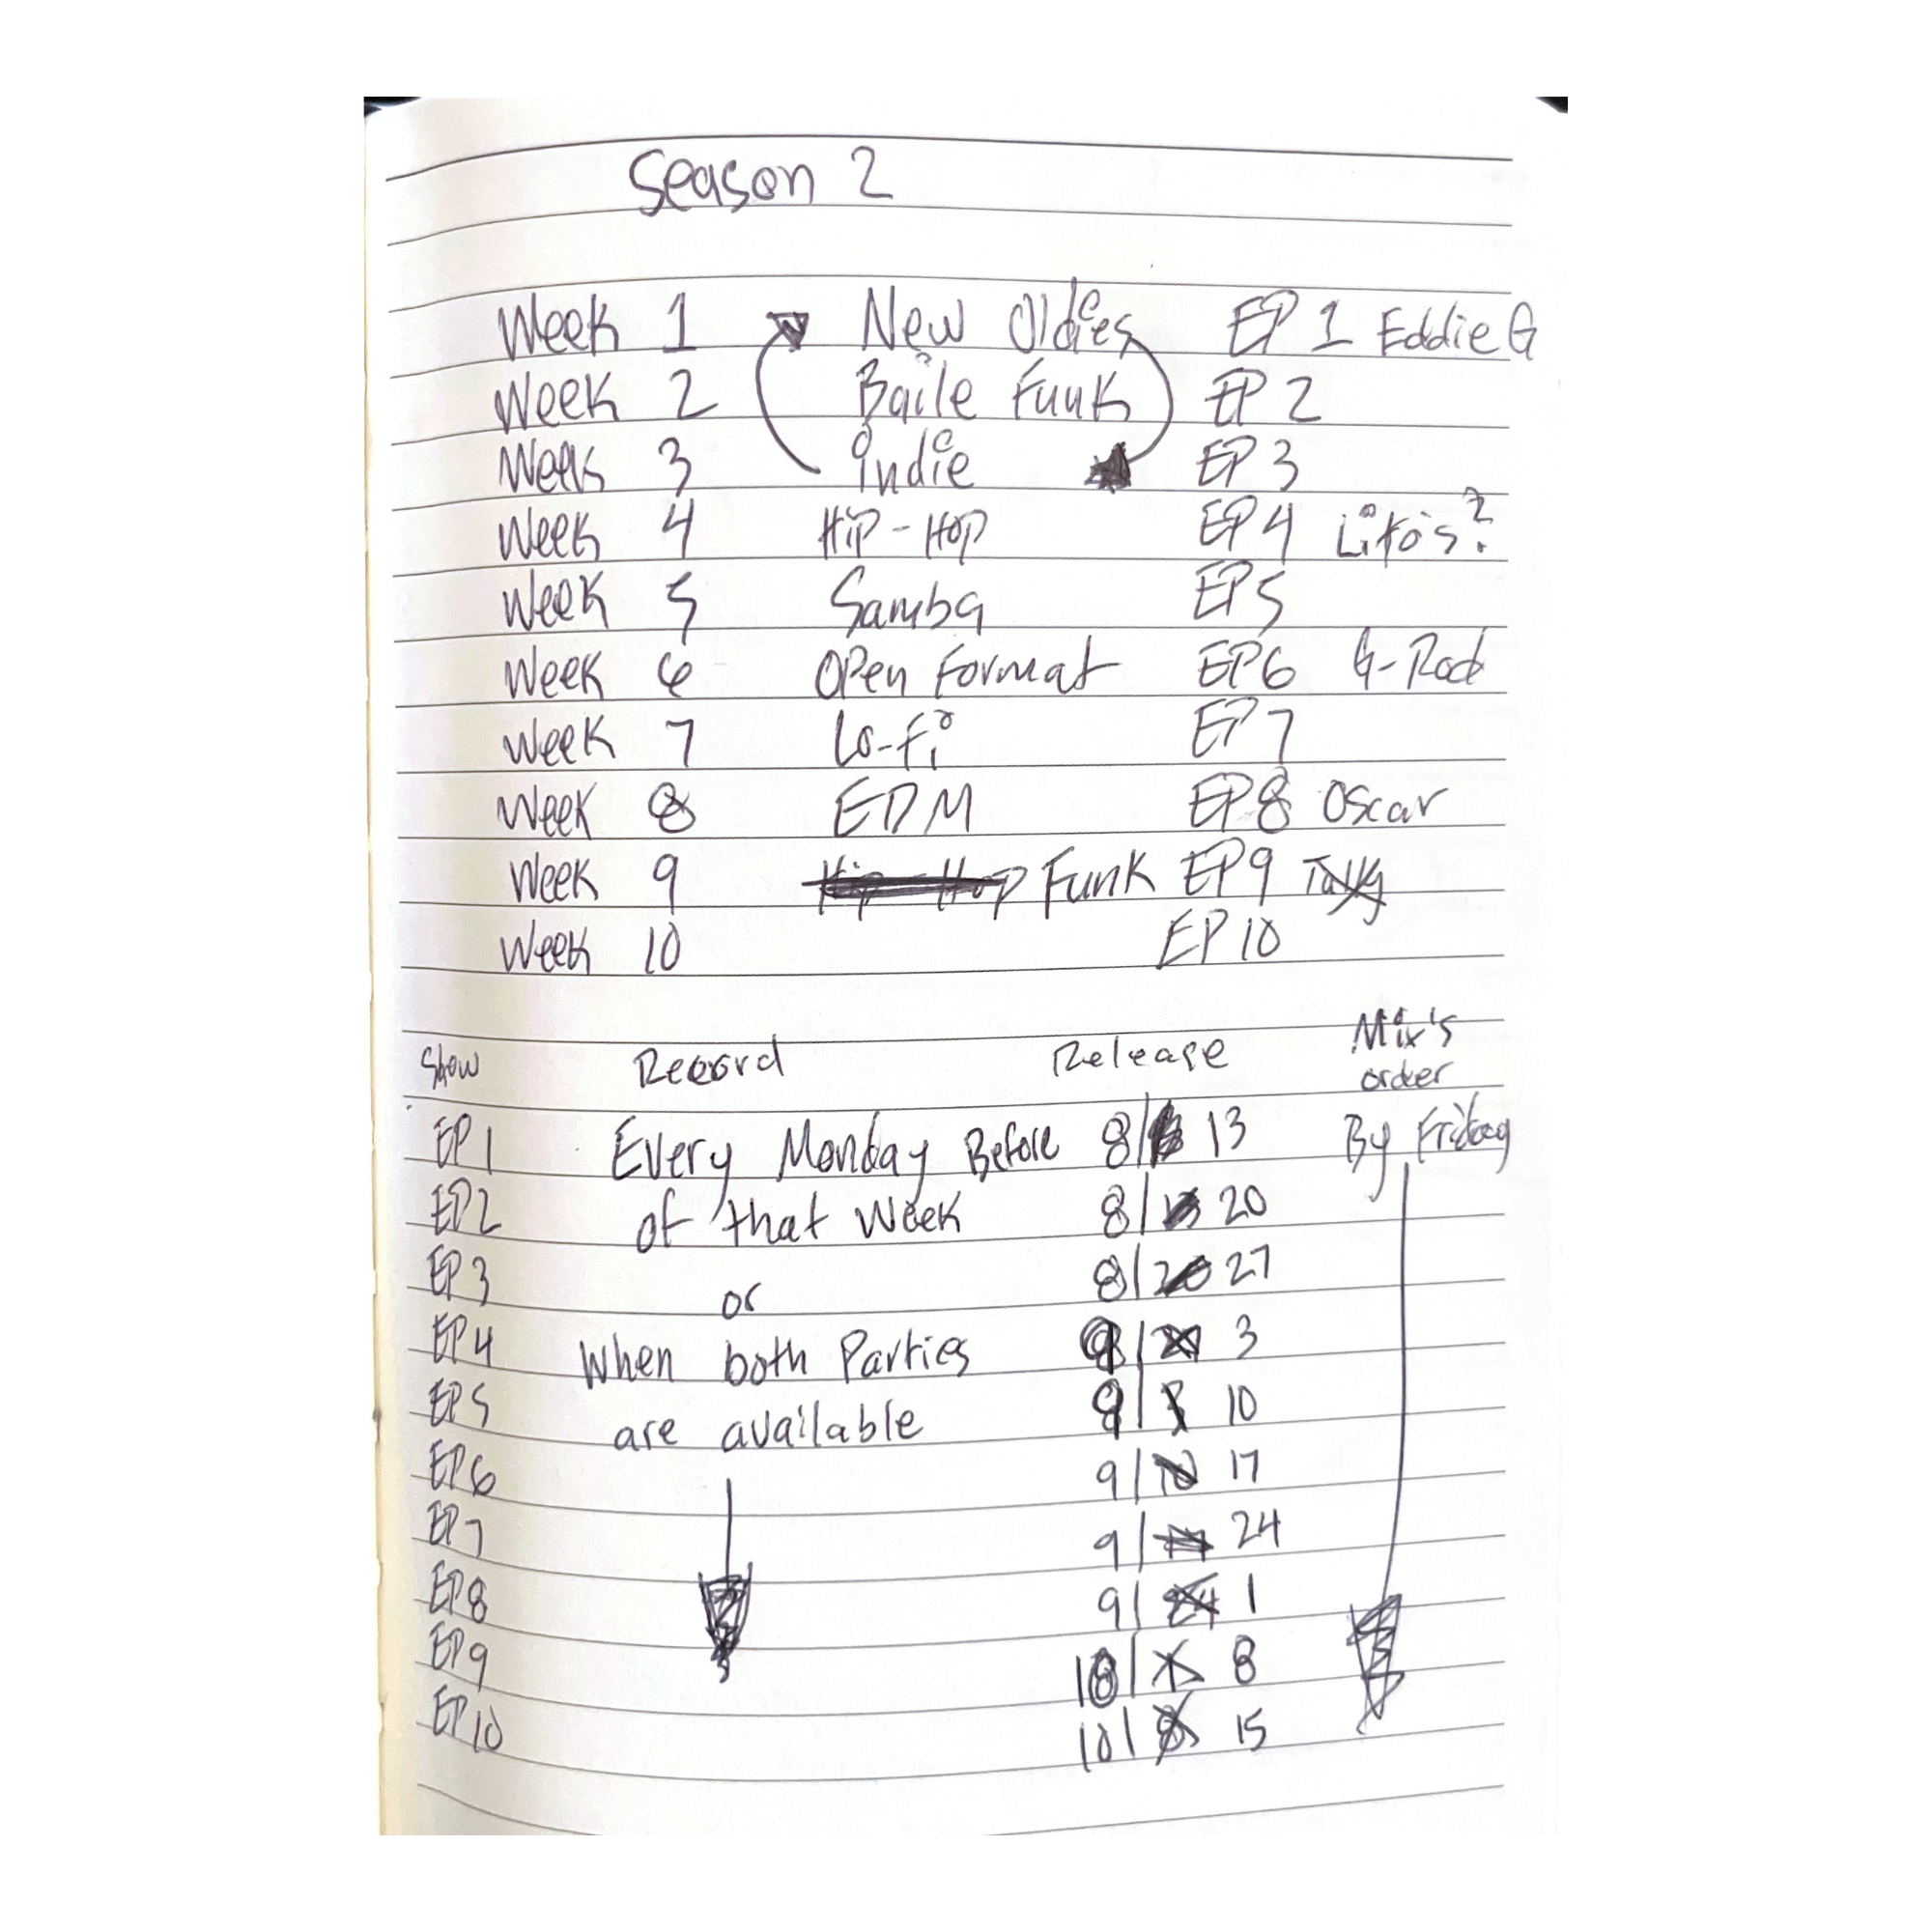 Season 2
Week 1 New Oldies EP 1 Eddie G
Week 2 Baile Funk EP 2
Week 3 indie EP 3
Week 4 Hip-Hop EP4 Lito's?
Week 5 Samba EP5
Week 6 Open Format EP6 G-Rod
Week 7 Lo-Fi EP 7
Week 8 EDM EP8 Oscar
Week 9 Hip-Hop Funk EP9
Week 10 EP 10
Show Record Release Mix's order
EP1 Every Monday Before 8/ 13 By Friday
EP2 of that Week 8/ 20
EP3 or 8/20 27
EP4 when both Parties 9/ 3
EP5 are available 9/3 10
EP6 9/10 17
EP7 9/ 24
EP8 9/24 1
EP9 10/1 8
EP10 10/8 15